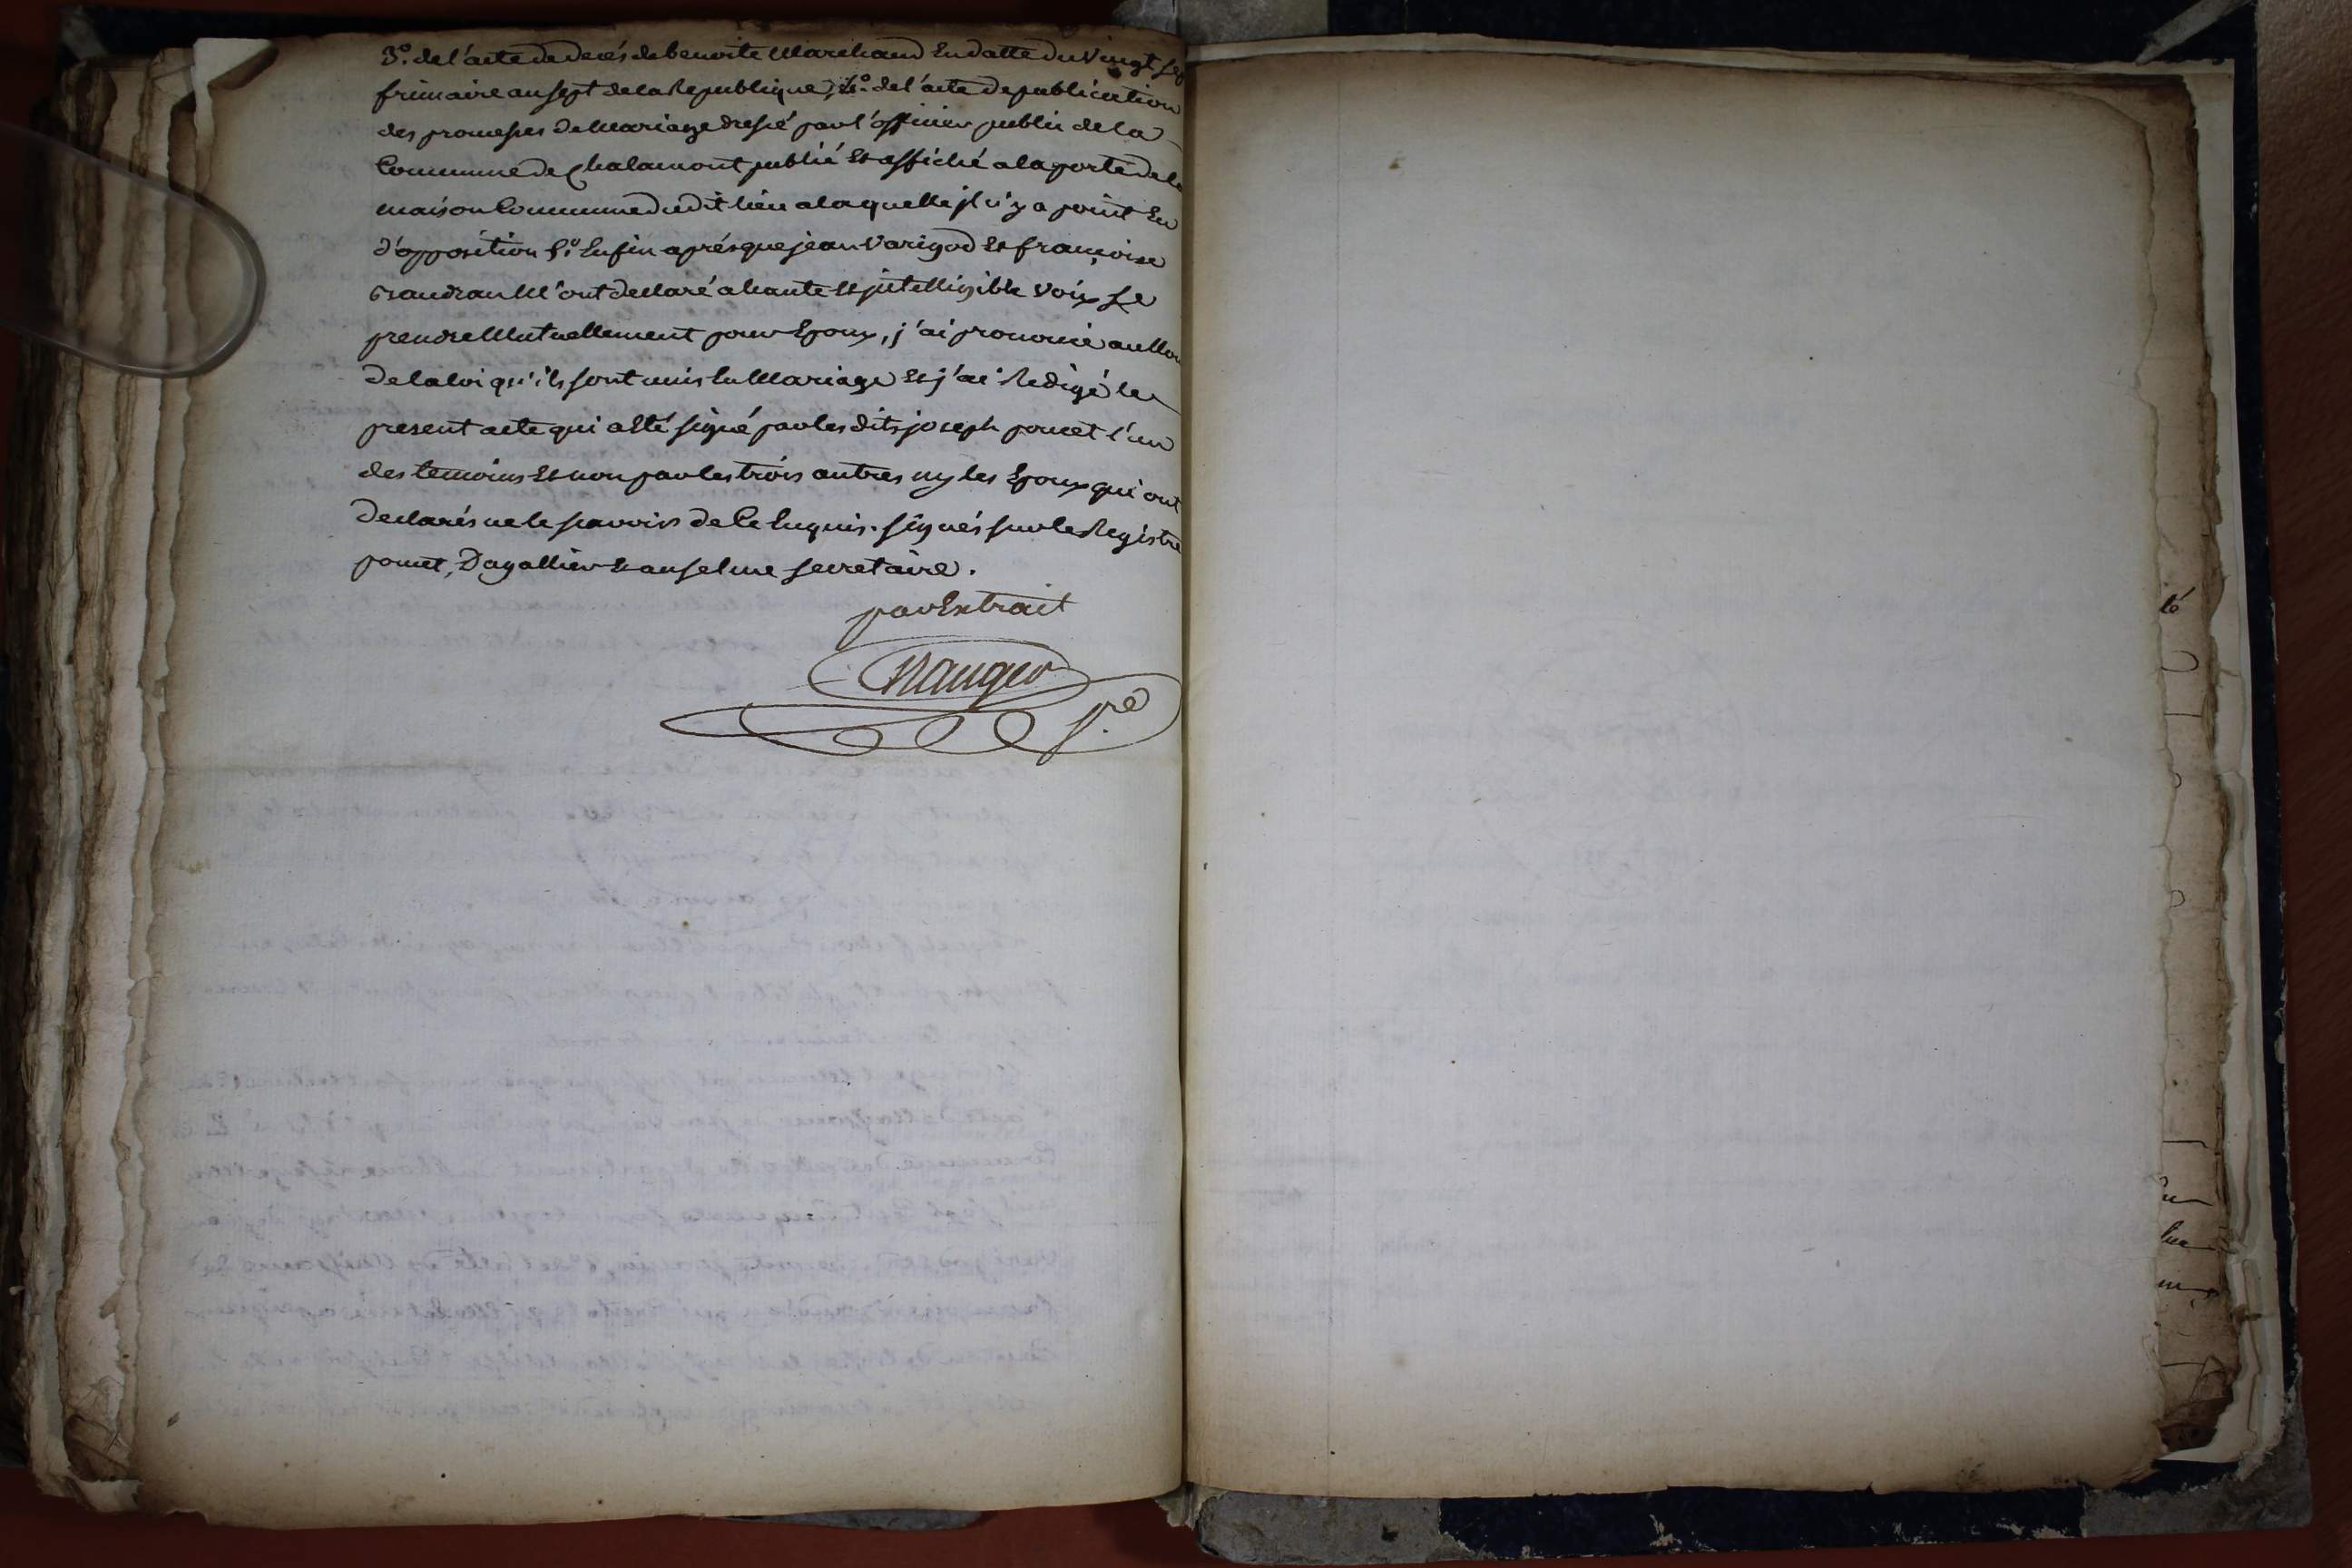 3.º de l'acte de decés de benoite Marchand En datte du Vingt sep
frimaire an sept de la Republique, 4.º de l'acte de publication
des promesses de Mariage dressé par l'officier public de la
Commune de Chalamont publié et affiché a la porte de la
maison Commune du dit lieu a laquelle jl n'y a point Eu
d'opposition 5.º Enfin aprés que jean Varigod et françoise
M'ont declaré a haute et jntelligible Voix se
prendre Mutuellement pour Epoux, j'ai prononcé au Nom
de la loi qu'ils sont unis En Mariage et j'ai Redigé le
present acte qui a été signé par les dits joseph poncet l'un
des temoins et non par les trois autres ny les Epoux qui ont
declarés ne le scavoir de Ce Enquis. signés sur le Registre
poncet, Dagallier et anselme secretaire.
par Extrait
Nauger
s.re
té